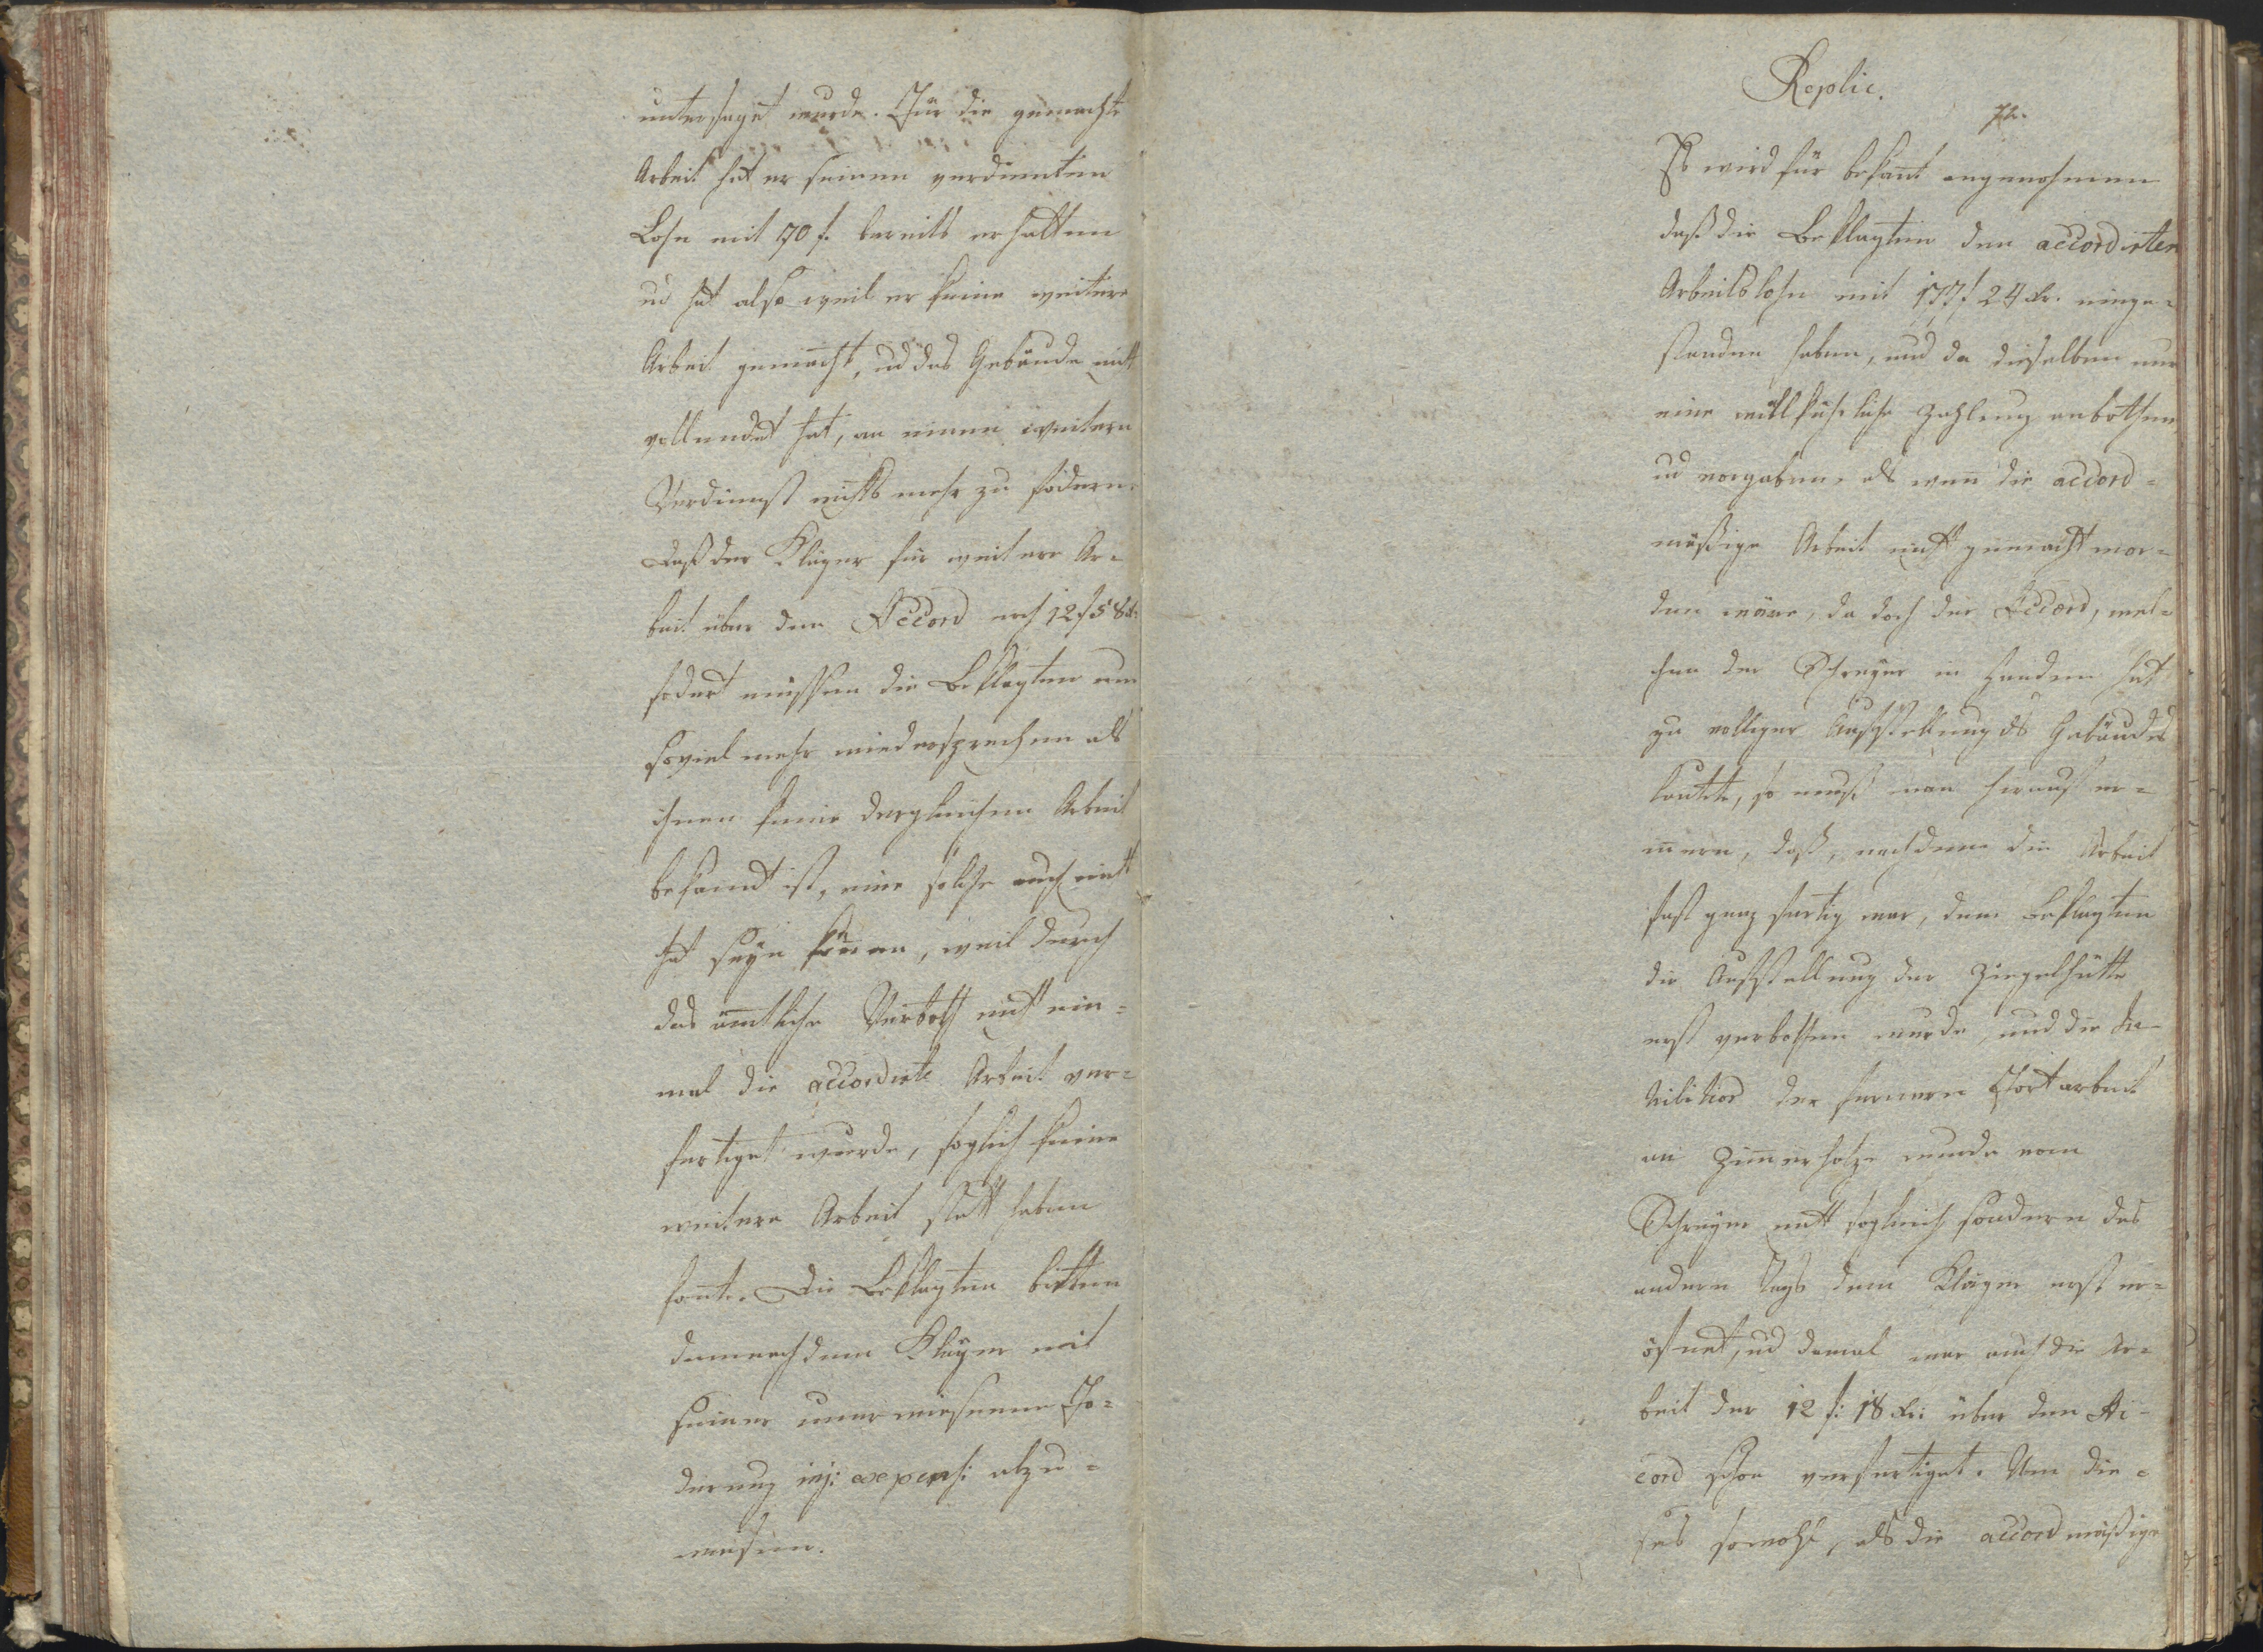 untersagt wurde. Für die gemachte
Arbeit hat er seinen verdienten
Lohn mit 70 f. bereits erhalten
ud hat also weil er keine weitere
Arbeit gemacht, ud das Gebäude nicht
vollendet hat, an einem weitern
Verdienst nichts mehr zu fodern.
Daß der Kläger für weitere Ar=
beit über den Accord noch 12 f 58 kr
fodert müssen die Beklagten um
soviel mehr wiedersprechen als
ihnen keine dergleichen Arbeit
bekandt ist, eine solche auch nicht
hat seyn können, weil durch
das amtliche Verboth nicht ein=
mal die accordirte Arbeit ver=
fertiget wurde, soglich keine
weitere Arbeit statt haben
konte. Die Beklagten bitten
demnach den Kläger mit
seiner unerwiesenen Fo=
derung inj: expens: abzu=
weisen.
Replic.
72.
Es wird für bekant angenohmen
daß die Beklagten den accordirten
Arbeitslohn mit 177 f 24 kr. einge=
standen haben, und da dieselben nur
eine willkührliche Zahlung anbothen,
ud vorgaben, als wenn die accord=
mäßige Arbeit nicht gemacht wor=
den wäre, da doch der Accord, wel=
chen der Schreyer in Handen hat
zu völliger Aufstellung des Gebäudes
lautete, so muß man hierauf er=
inern, daß, nachdeme die Arbeit
fast ganz fertig war, dem Beklagten
die Aufstellung der Ziegelhütte
erst verbothen wurde, und die In=
hibition der fernern Fortarbeit
an Zimerholze wurde vom
Schreyer nicht sogleich sondern des
andern Tags dem Kläger erst er=
öfnet, ud damal war auch die Ar=
beit der 12 f: 18 kr: über den Ac=
cord schon verfertiget. Um die=
ses sowohl, als die accordmäßige